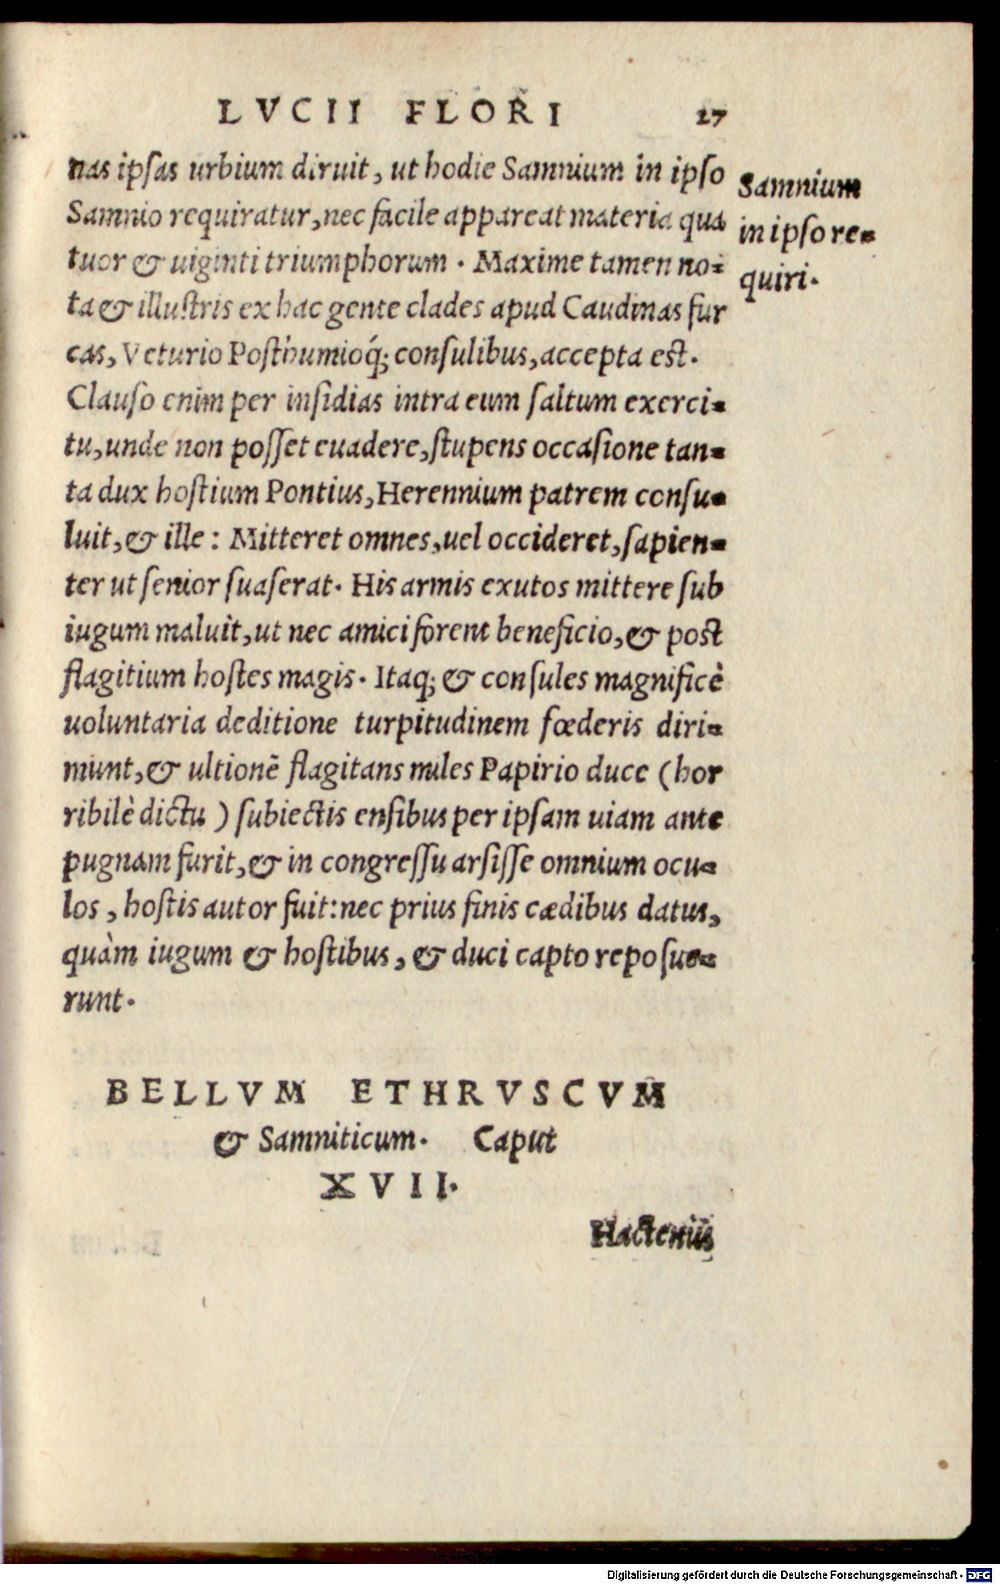 LVCII FLORI 27
nas ipsas urbium diruit, ut hodie Samnium in ipso
Samnio requiratur, nec facile appareat materia qua
tuor & uiginti triumphorum. Maxime tamen no-
ta & illustris ex hac gente clades apud Caudinas fur
cas, Veturio Posthumioq́; consulibus, accepta est.
Clauso enim per insidias intra eum saltum exerci-
tu, unde non posset euadere, stupens occasione tan-
ta dux hostium Pontius, Herennium patrem consu-
luit, & ille: Mitteret omnes, uel occideret, sapien-
ter ut senior suaserat. His armis exutos mittere sub
iugum maluit, ut nec amici forent beneficio, & post
flagitium hostes magis. Itaq; & consules magnificè
uoluntaria deditione turpitudinem fœderis diri-
munt, & ultionē flagitans miles Papirio duce (hor
ribilè dictu) subiectis ensibus per ipsam uiam ante
pugnam furit, & in congressu arsisse omnium ocu-
los, hostis autor fuit: nec prius finis cædibus datus,
quàm iugum & hostibus, & duci capto reposue-
runt.
Samnium
in ipso re-
quiri.
BELLVM ETHRVSCVM
& Samniticum. Caput
XVII.
Hactenus
Digitalisierung gefördert durch die Deutsche Forschungsgemeinschaft - DFG